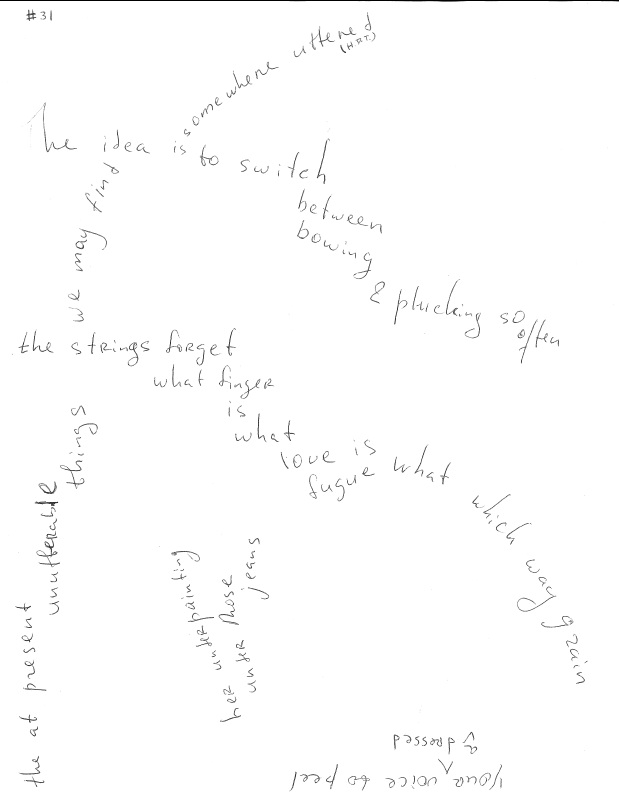 #31
somewhere uttered
(HRT.)
The idea is to switch
between
bowing
& plucking so
often
the strings forget
what finger
is
what
love is
fugue what
which way grain
the at present
unutterable
things
we may find
under painting
her under hose
under jeans
your voice to peel
a dressed